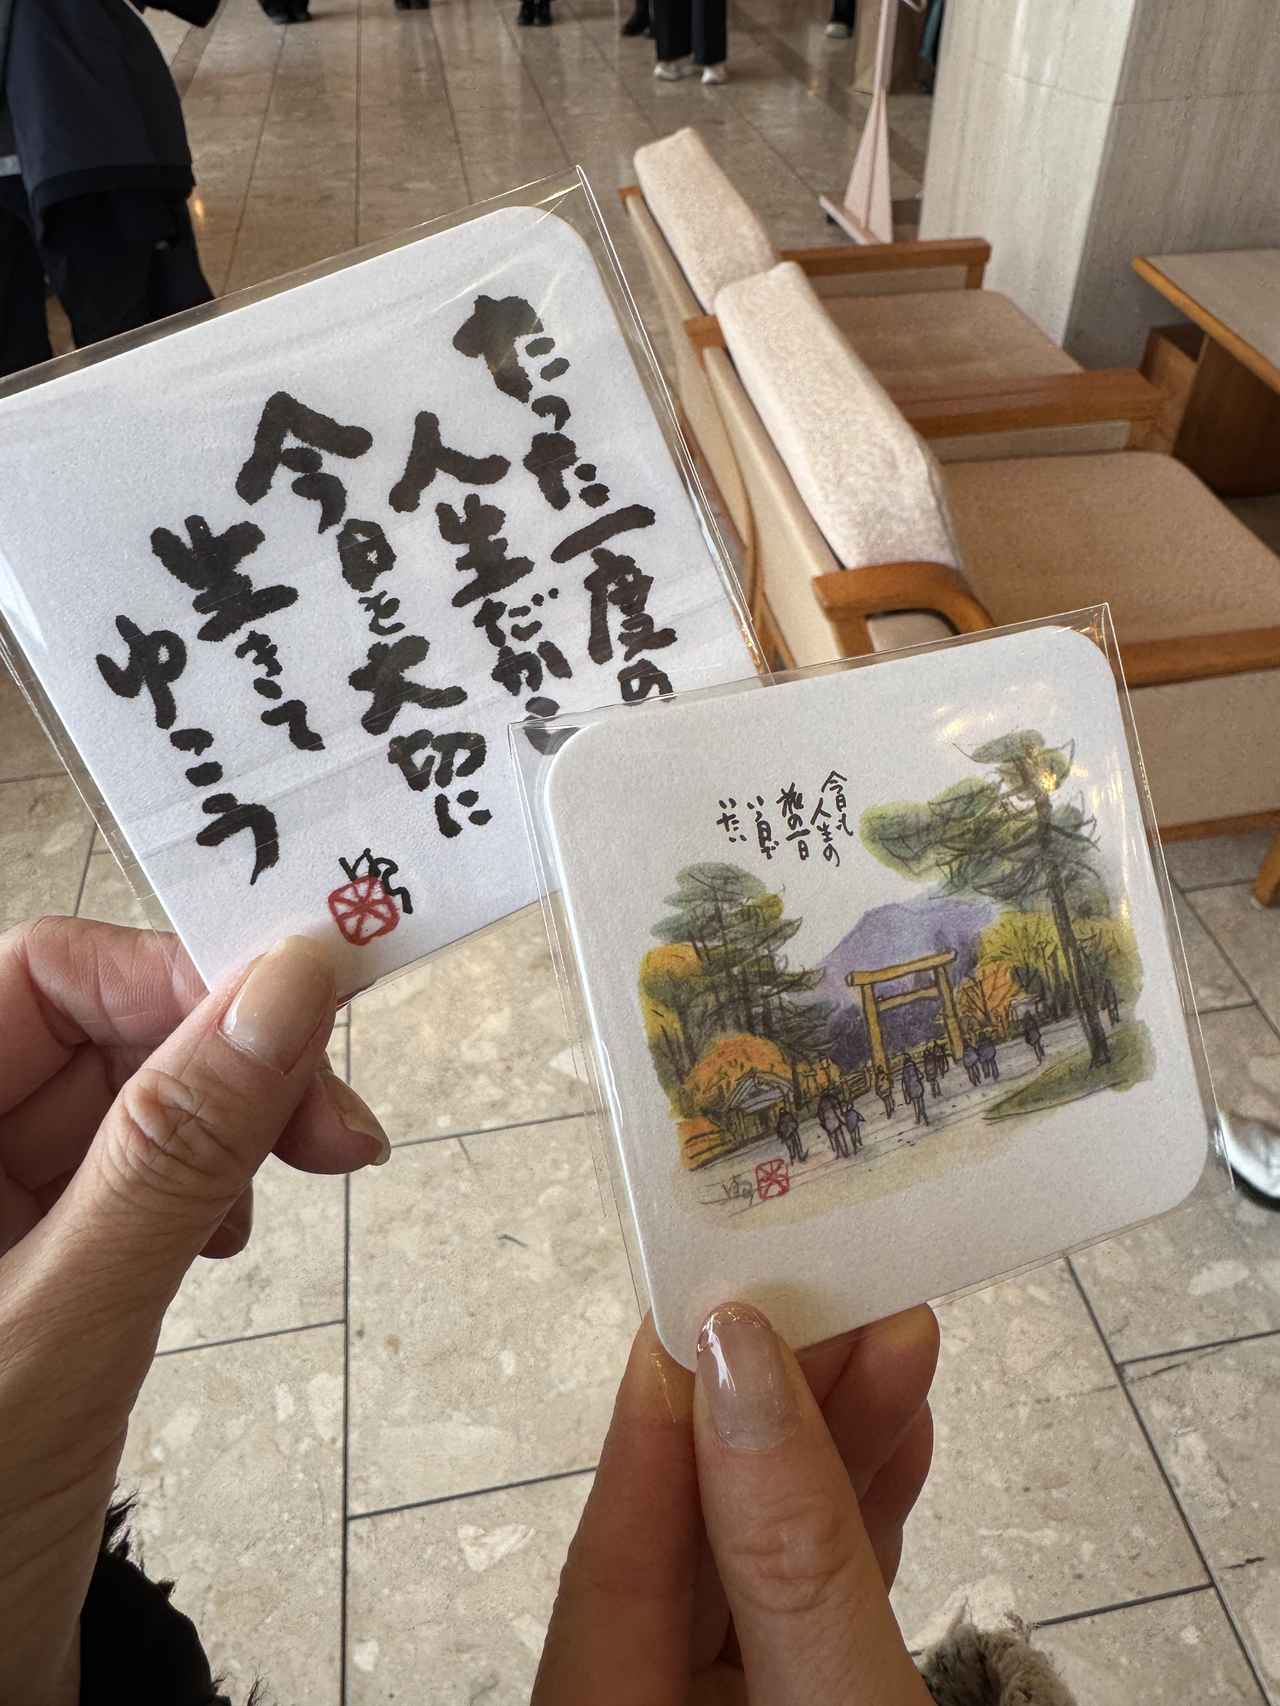 たった一度の
人生だから
今日を大切に
生きて
ゆこう
今日も
人生の
旅の一日
いい顔で
いたい